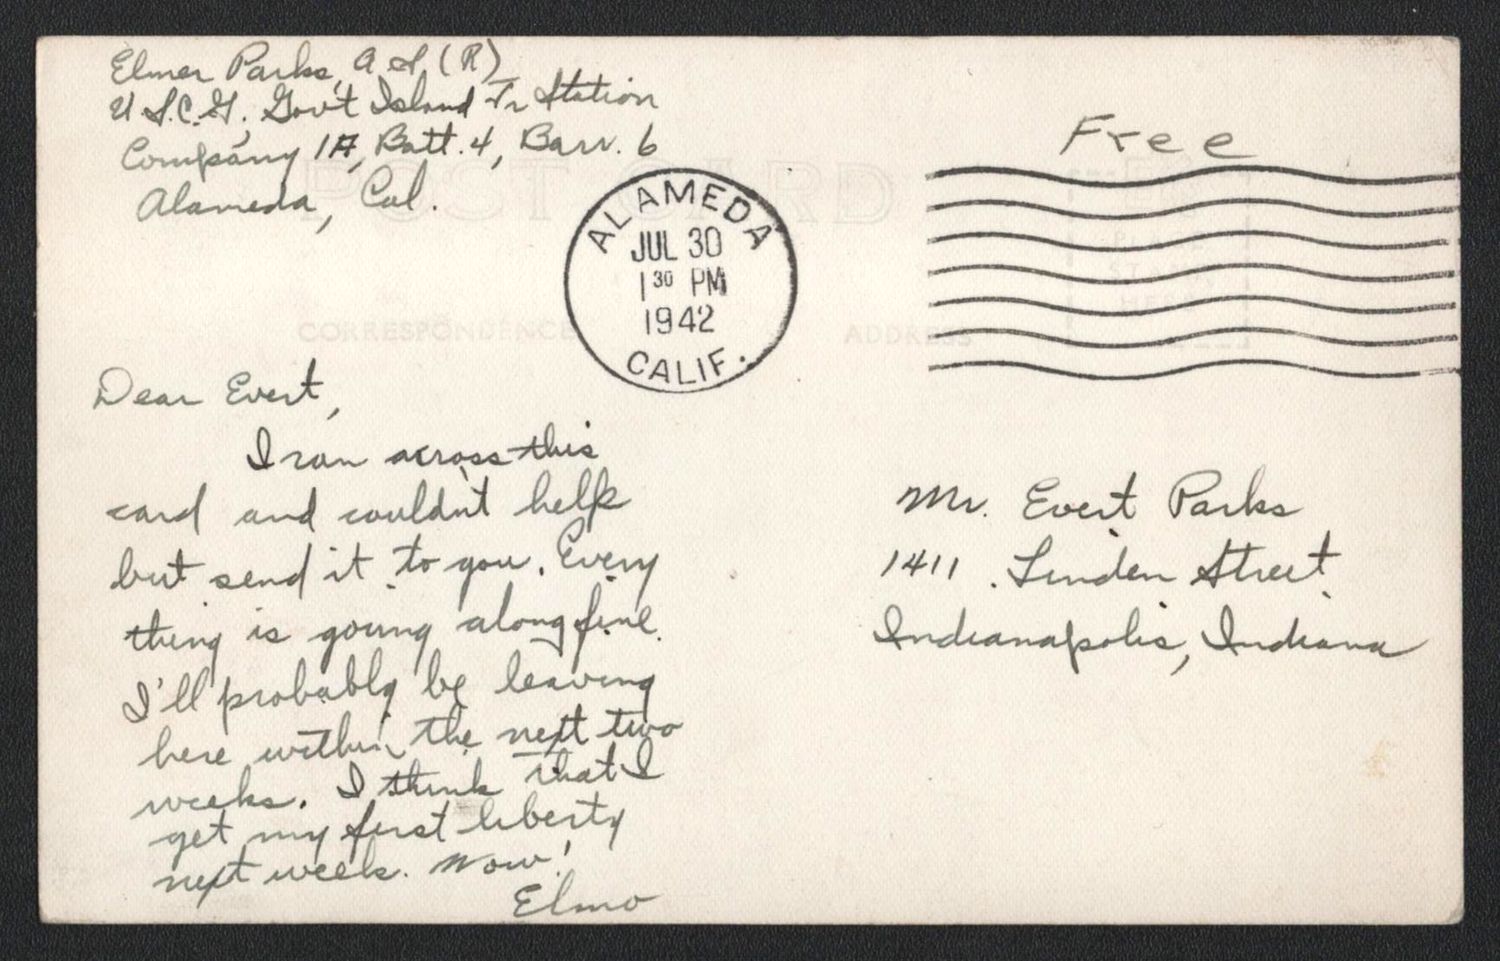 Elmer Parks, A.S. (R)
U.S.C.G., Gov't Island Tr Station
Company 1A, Batt. 4, Barr. 6
Alameda, Cal.
Free
POST CARD
ALAMEDA
JUL 30
1 30 PM
1942
CALIF.
PLACE
STAMP
HERE
CORRESPONDENCE
ADDRESS
Dear Evert,
I ran across this
card and couldn't help
but send it to you. Every
thing is going along fine.
I'll probably be leaving
here within the next two
weeks. I think that I
get my first liberty
next week. Wow!
Elmo
Mr. Evert Parks
1411 Linden Street
Indianapolis, Indiana